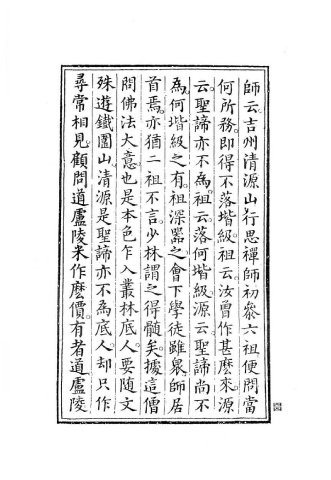 師云吉州清源山行思禪師初參六祖便問當
何所務即得不落堦級祖云汝曾作甚麽來源
云聖諦亦不為祖云落何堦級源云聖諦尚不
為何堦級之有祖深噐之會下學徒雖衆師居
首焉亦猶二祖不言少林謂之得髓矣據這僧
問佛法大意也是本色乍入叢林底人要隨文
殊遊鐵圍山清源是聖諦亦不為底人却只作
尋常相見顧問道盧陵米作麽價有者道盧陵